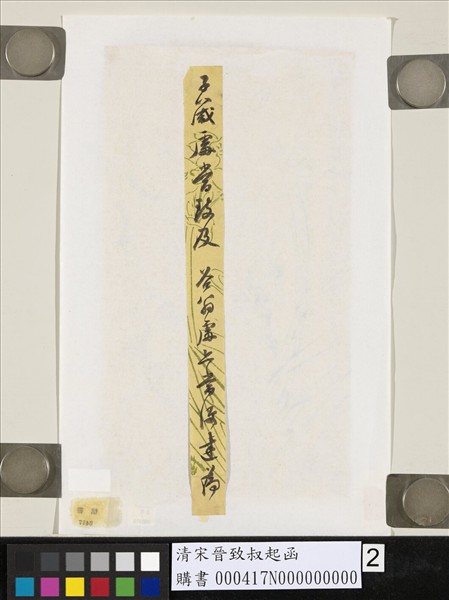 子箴處當致及 翁處亦當達
清宋晉致叔起函
購書 000417N000000000
2